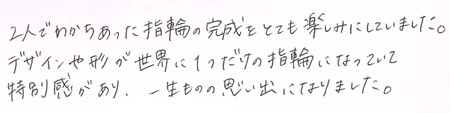 2人でわかちあった指輪の完成をとても楽しみにしていました。
デザインや形が世界に1つだけの指輪になっていて
特別感があり、一生ものの思い出になりました。